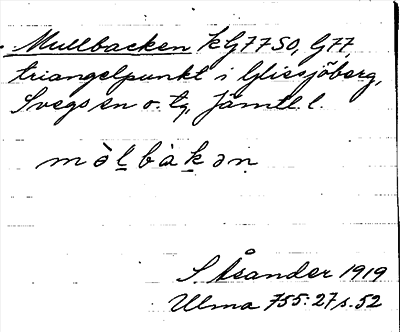 Mullbacken kG77SO, G77,
triangelpunkt i Glissjöberg,
Svegs sn o. tg, Jämtl. l.
mòlbàkən
S. Åsander 1919
Ulma 755:27 s. 52